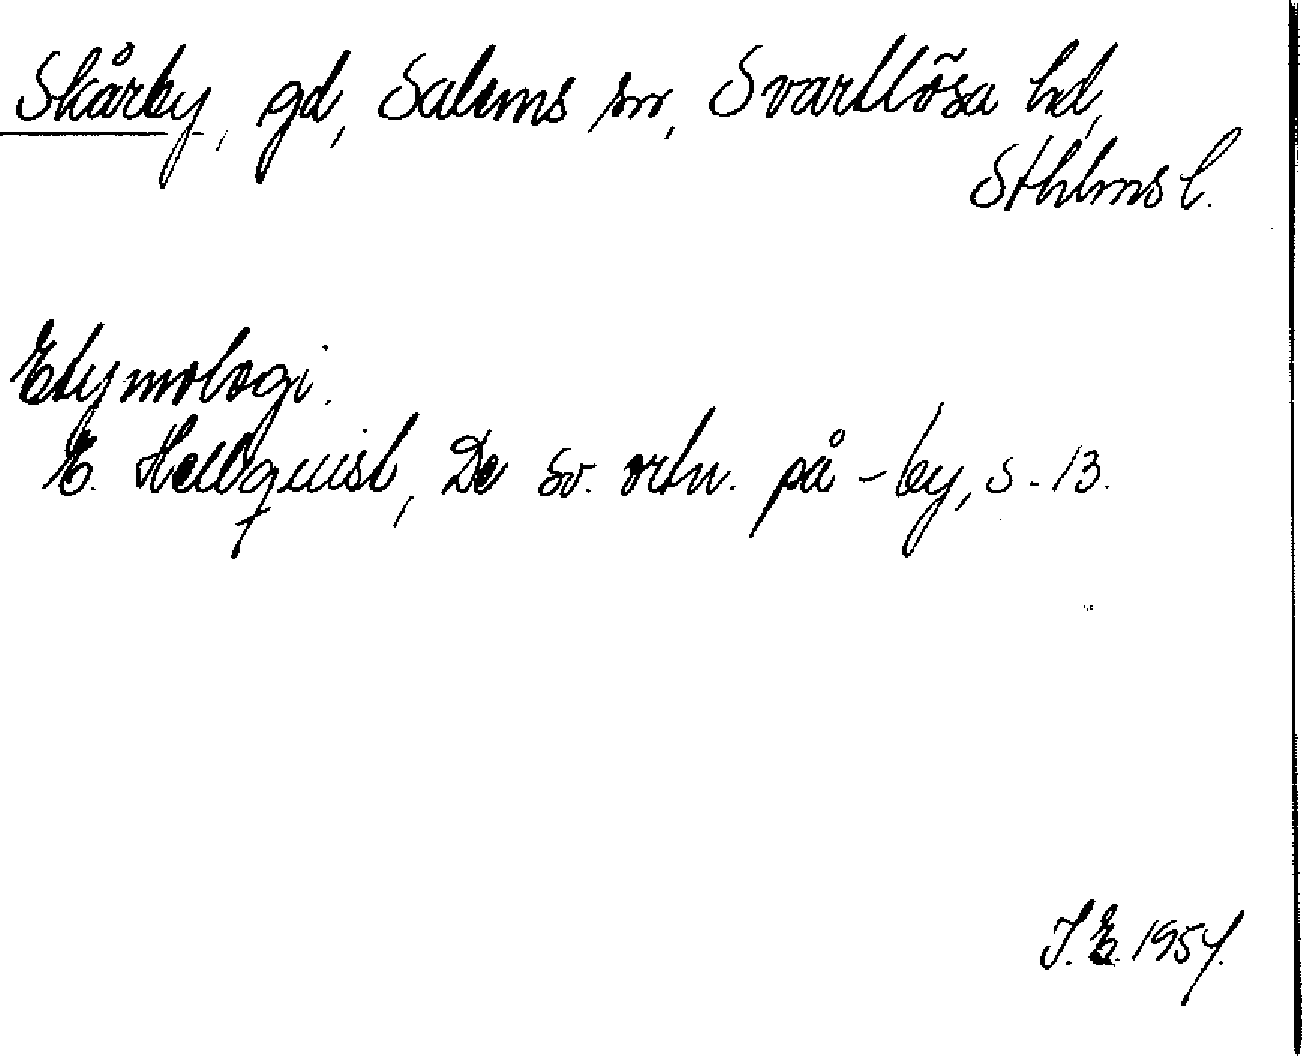 Skårby, gd, Salems sn, Svartlösa hd,
Sthlms l.
Etymologi.
E. Hellquist, De sv. ortn. på -by, s. 13.
I.E. 1954.